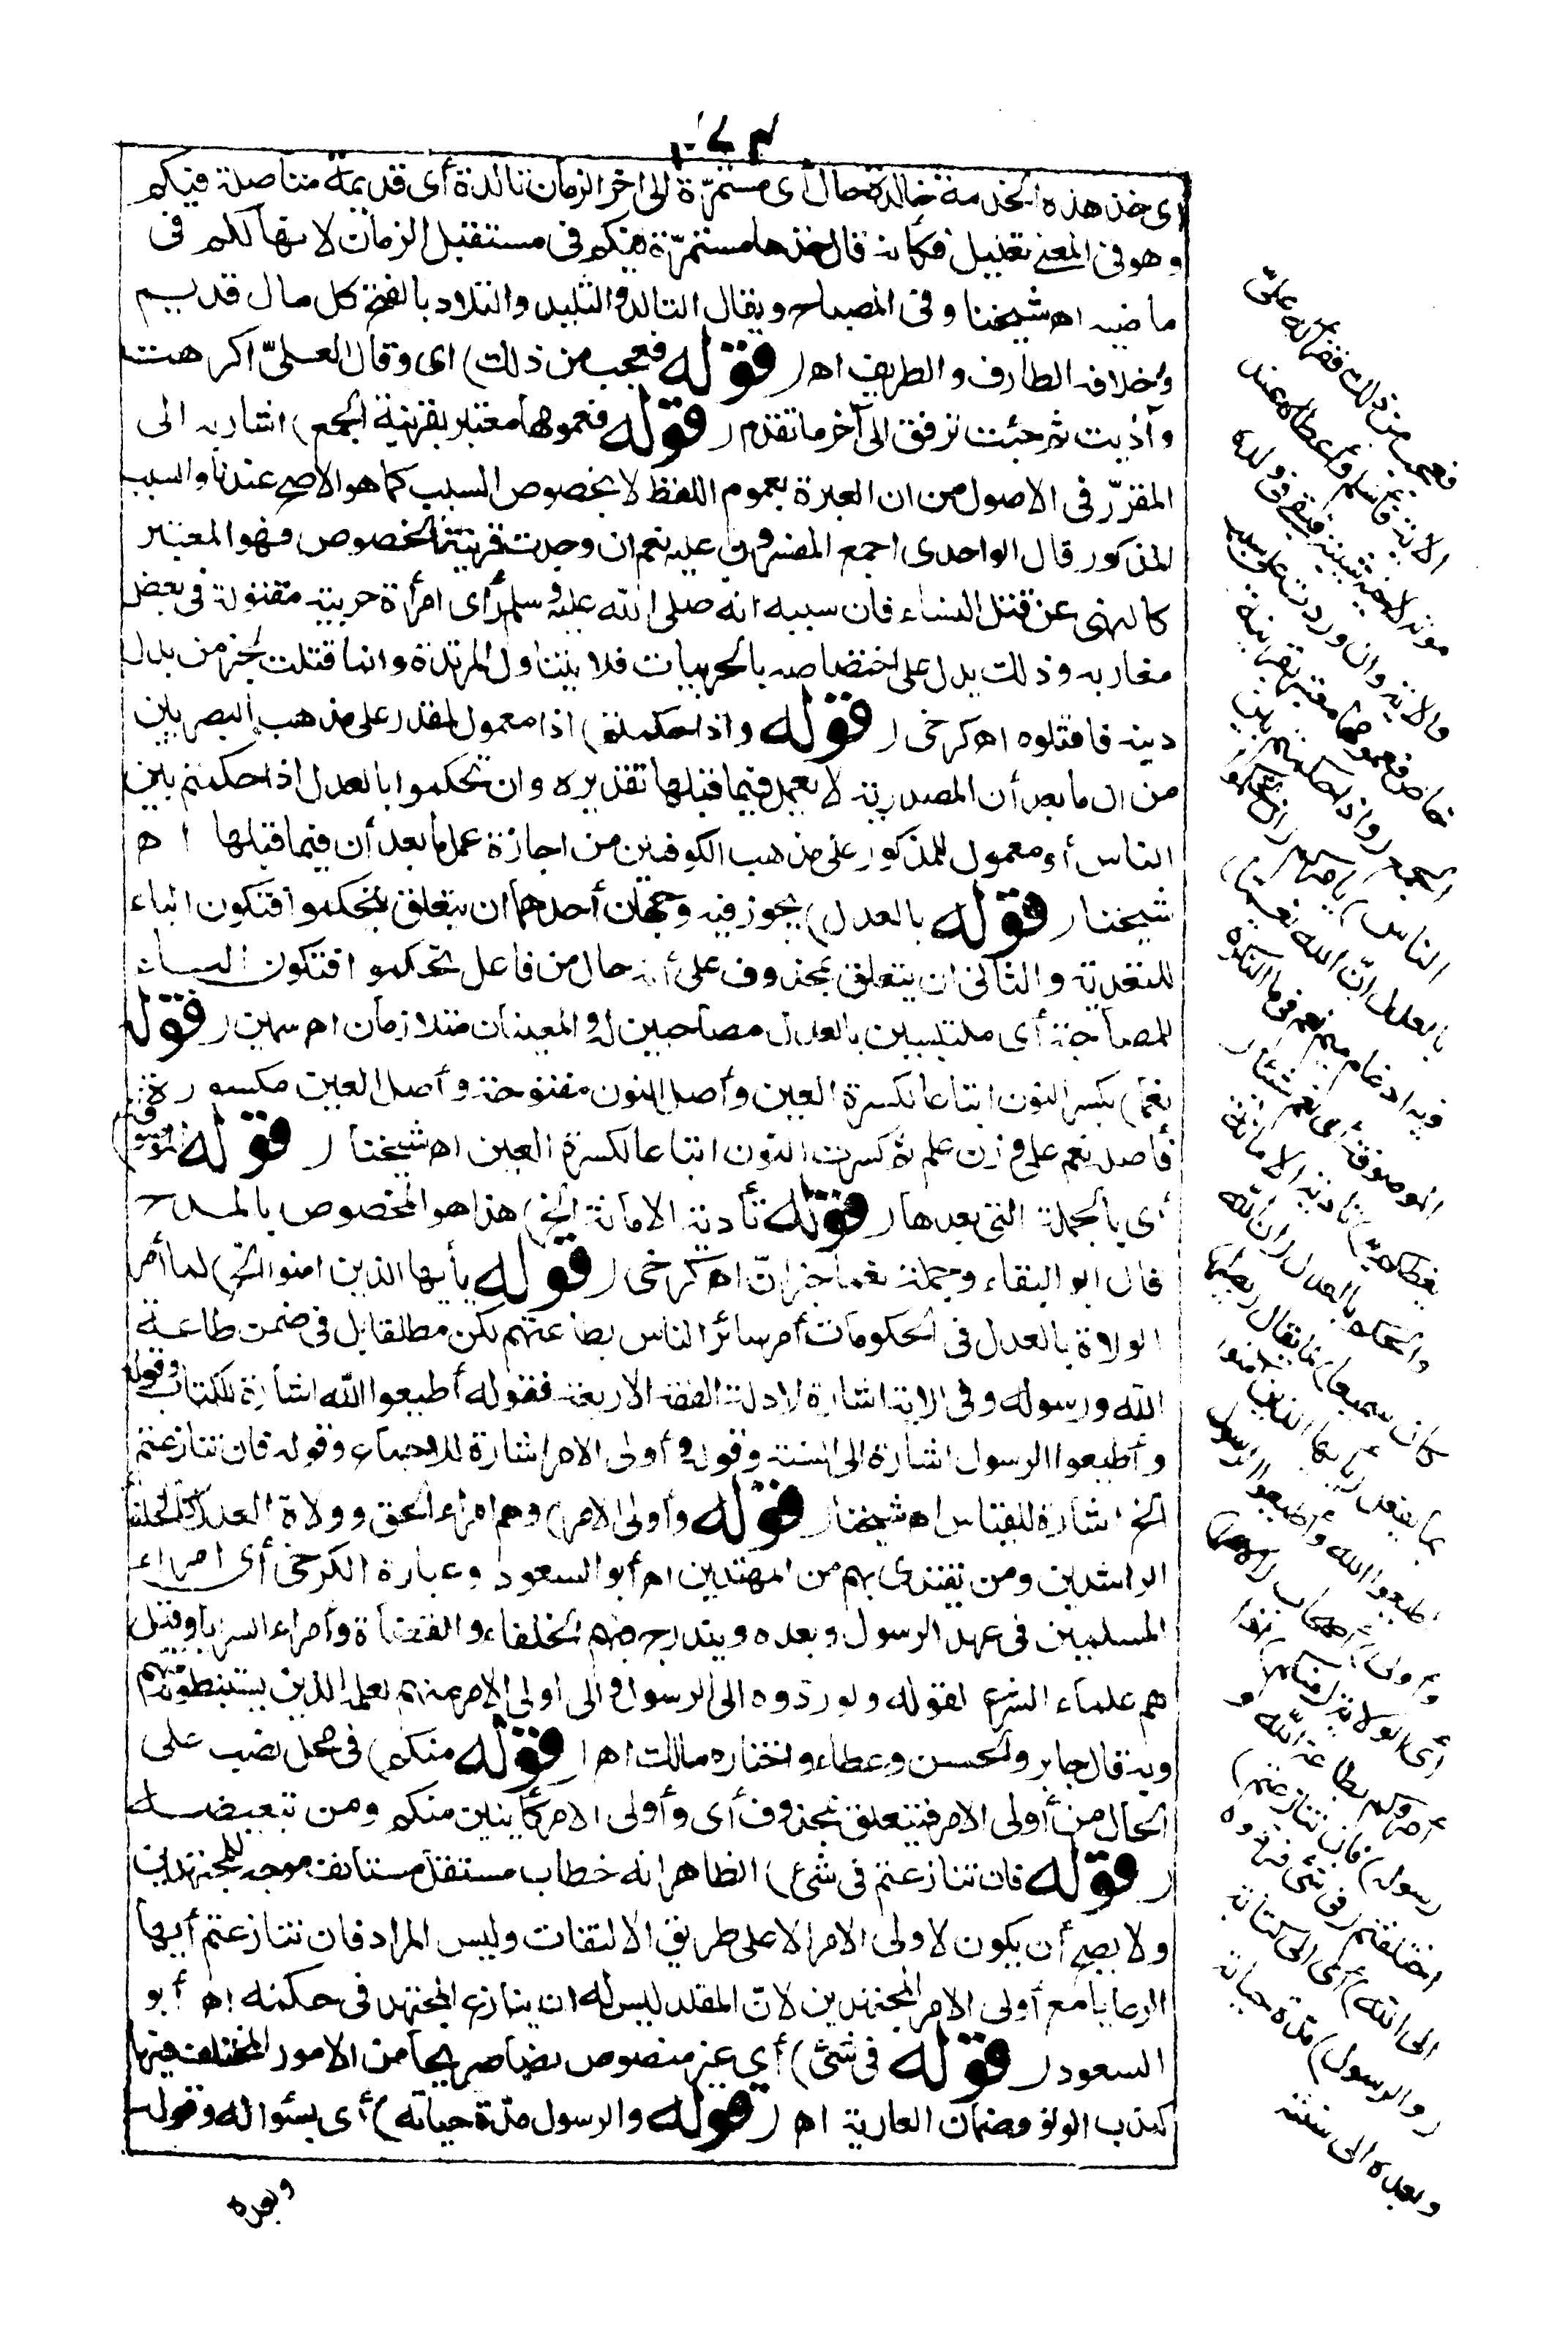 أى خذ هذه الخدمة خالدة حال أى مستمرّة الى اخر الزمان تالدة أى قديمة متأصلة فيكم
وهو فى المعنى تعليل فكأنه قال خذها مستمرّة فيكم فى مستقبل الزمان لانها لكم فى
ماضيه اه شيخنا وفى المصباح ويقال التالد والتليد والتلاد بالفتح كل مال قديم
وخلافه الطارف والطريف اه ( قوله فعجب من ذلك ) اى وقال لعلىّ اكرهت
وآذيت ثم جئت ترفق الى آخر ما تقدم ( قوله فعمومها معتبر بقرينة الجمع ) اشار به الى
المقرّر فى الاصول من ان العبرة بعموم اللفظ لا بخصوص السبب كما هو الاصح عندنا والسبب
المذكور قال الواحدى اجمع المفسرون عليه نعم ان وجدت قرينة الخصوص فهو المعتبر
كالنهى عن قتل النساء فان سببه انه صلى الله عليه وسلم رأى امرأة حربية مقتولة فى بعض
مغازيه وذلك يدل على اختصاصه بالحربيات فلا يتناول المرتدة وانما قتلت لخبر من بدل
دينه فاقتلوه اه كرخى ( قوله واذا حكمتم ) اذا معمول لمقدر على مذهب البصريين
من ان ما بعد أن المصدرية لا يعمل فيما قبلها تقديره وان تحكموا بالعدل اذا حكمتم بين
الناس أو معمول للمذكور على مذهب الكوفيين من اجازة عمل ما بعد أن فيما قبلها اه
شيخنا ( قوله بالعدل ) يجوز فيه وجهان أحدهما ان يتعلق بتحكموا فتكون الباء
للتعدية والثانى ان يتعلق بمحذوف على أنه حال من فاعل تحكموا فتكون الباء
للمصاحبة أى ملتبسين بالعدل مصاحبين له والمعنيان متلازمان اه سمين ( قوله
نعما ) بكسر النون اتباعا لكسرة العين وأصل النون مفتوحة وأصل العين مكسورة
فأصله نعم على وزن علم ثم كسرت النون اتباعا لكسرة العين اه شيخنا ( قوله الموصوفة )
أى بالجملة التى بعدها ( قوله تأدية الامانة الخ ) هذا هو المخصوص بالمدح
قال ابو البقاء وجملة نعما خبر انّ اه كرخى ( قوله يأيها الذين امنوا الخ ) لما أمر
الولاة بالعدل فى الحكومات أمر سائر الناس بطاعتهم لكن لا مطلقا بل فى ضمن طاعة
الله ورسوله وفى الاية اشارة لادلة الفقه الاربعة فقوله أطيعوا الله اشارة للكتاب وقوله
وأطيعوا الرسول اشارة الى السنة وقوله وأولى الامر اشارة للاجماع وقوله فان تنازعتم
الخ اشارة للقياس اه شيخنا ( قوله وأولى الامر ) وهم امراء الحق وولاة العدل كالخلفاء
الراشدين ومن يقتدى بهم من المهتدين اه أبو السعود وعبارة الكرخى أى امراء
المسلمين فى عهد الرسول وبعده ويندرج فيهم الخلفاء والقضاة وأمراء السرايا وقيل
هم علماء الشرع لقوله ولو ردوه الى الرسول والى اولى الامر منهم لعلمه الذين يستنبطونه منهم
وبه قال جابر والحسن وعطاء واختاره مالك اه ( قوله منكم ) فى محل نصب على
الحال من أولى الامر فيتعلق بمحذوف أى وأولى الامر كائنين منكم ومن تبعيضية
( قوله فان تنازعتم فى شئ ) الظاهر انه خطاب مستقل مستأنف موجه للمجتهدين
ولا يصح أن يكون لاولى الامر الا على طريق الالتفات وليس المراد فان تنازعتم أيها
الرعايا مع أولى الامر المجتهدين لانّ المقلد ليس له ان ينازع المجتهد فى حكمه اه أبو
السعود ( قوله فى شئ ) أى غير منصوص نصا صريحا من الامور المختلف فيها
كندب الوتر وضمان العارية اه ( قوله والرسول مدّة حياته ) أى بسؤاله وقوله
وبعده
فعجب من ذلك فقرأ له علىّ
الاية فأسلم وأعطاه عند
موته لاخيه شيبة فبقى فى ولده
والاية وان وردت على سبب
خاص فعمومها معتبر بقرينة
الجمع ( واذا حكمتم بين
الناس ) يأمركم ( ان تحكموا
بالعدل انّ الله نعما )
فيه ادغام ميم نعم فى ما النكرة
الموصوفة أى نعم شيئا (
يعظكم به ) تأدية الامانة
والحكم بالعدل ( ان الله
كان سميعا ) لما يقال ( بصيرا )
بما يفعل ( يأيها الذين امنوا
اطيعوا الله وأطيعوا الرسول
وأولى ) أصحاب ( الامر )
أى الولاة ( منكم ) اذا
أمروكم بطاعة الله و
رسوله ( فان تنازعتم )
اختلفتم ( فى شئ فردّوه
الى الله ) أى الى كتابه
( والرسول ) مدّة حياته
وبعده الى سنته